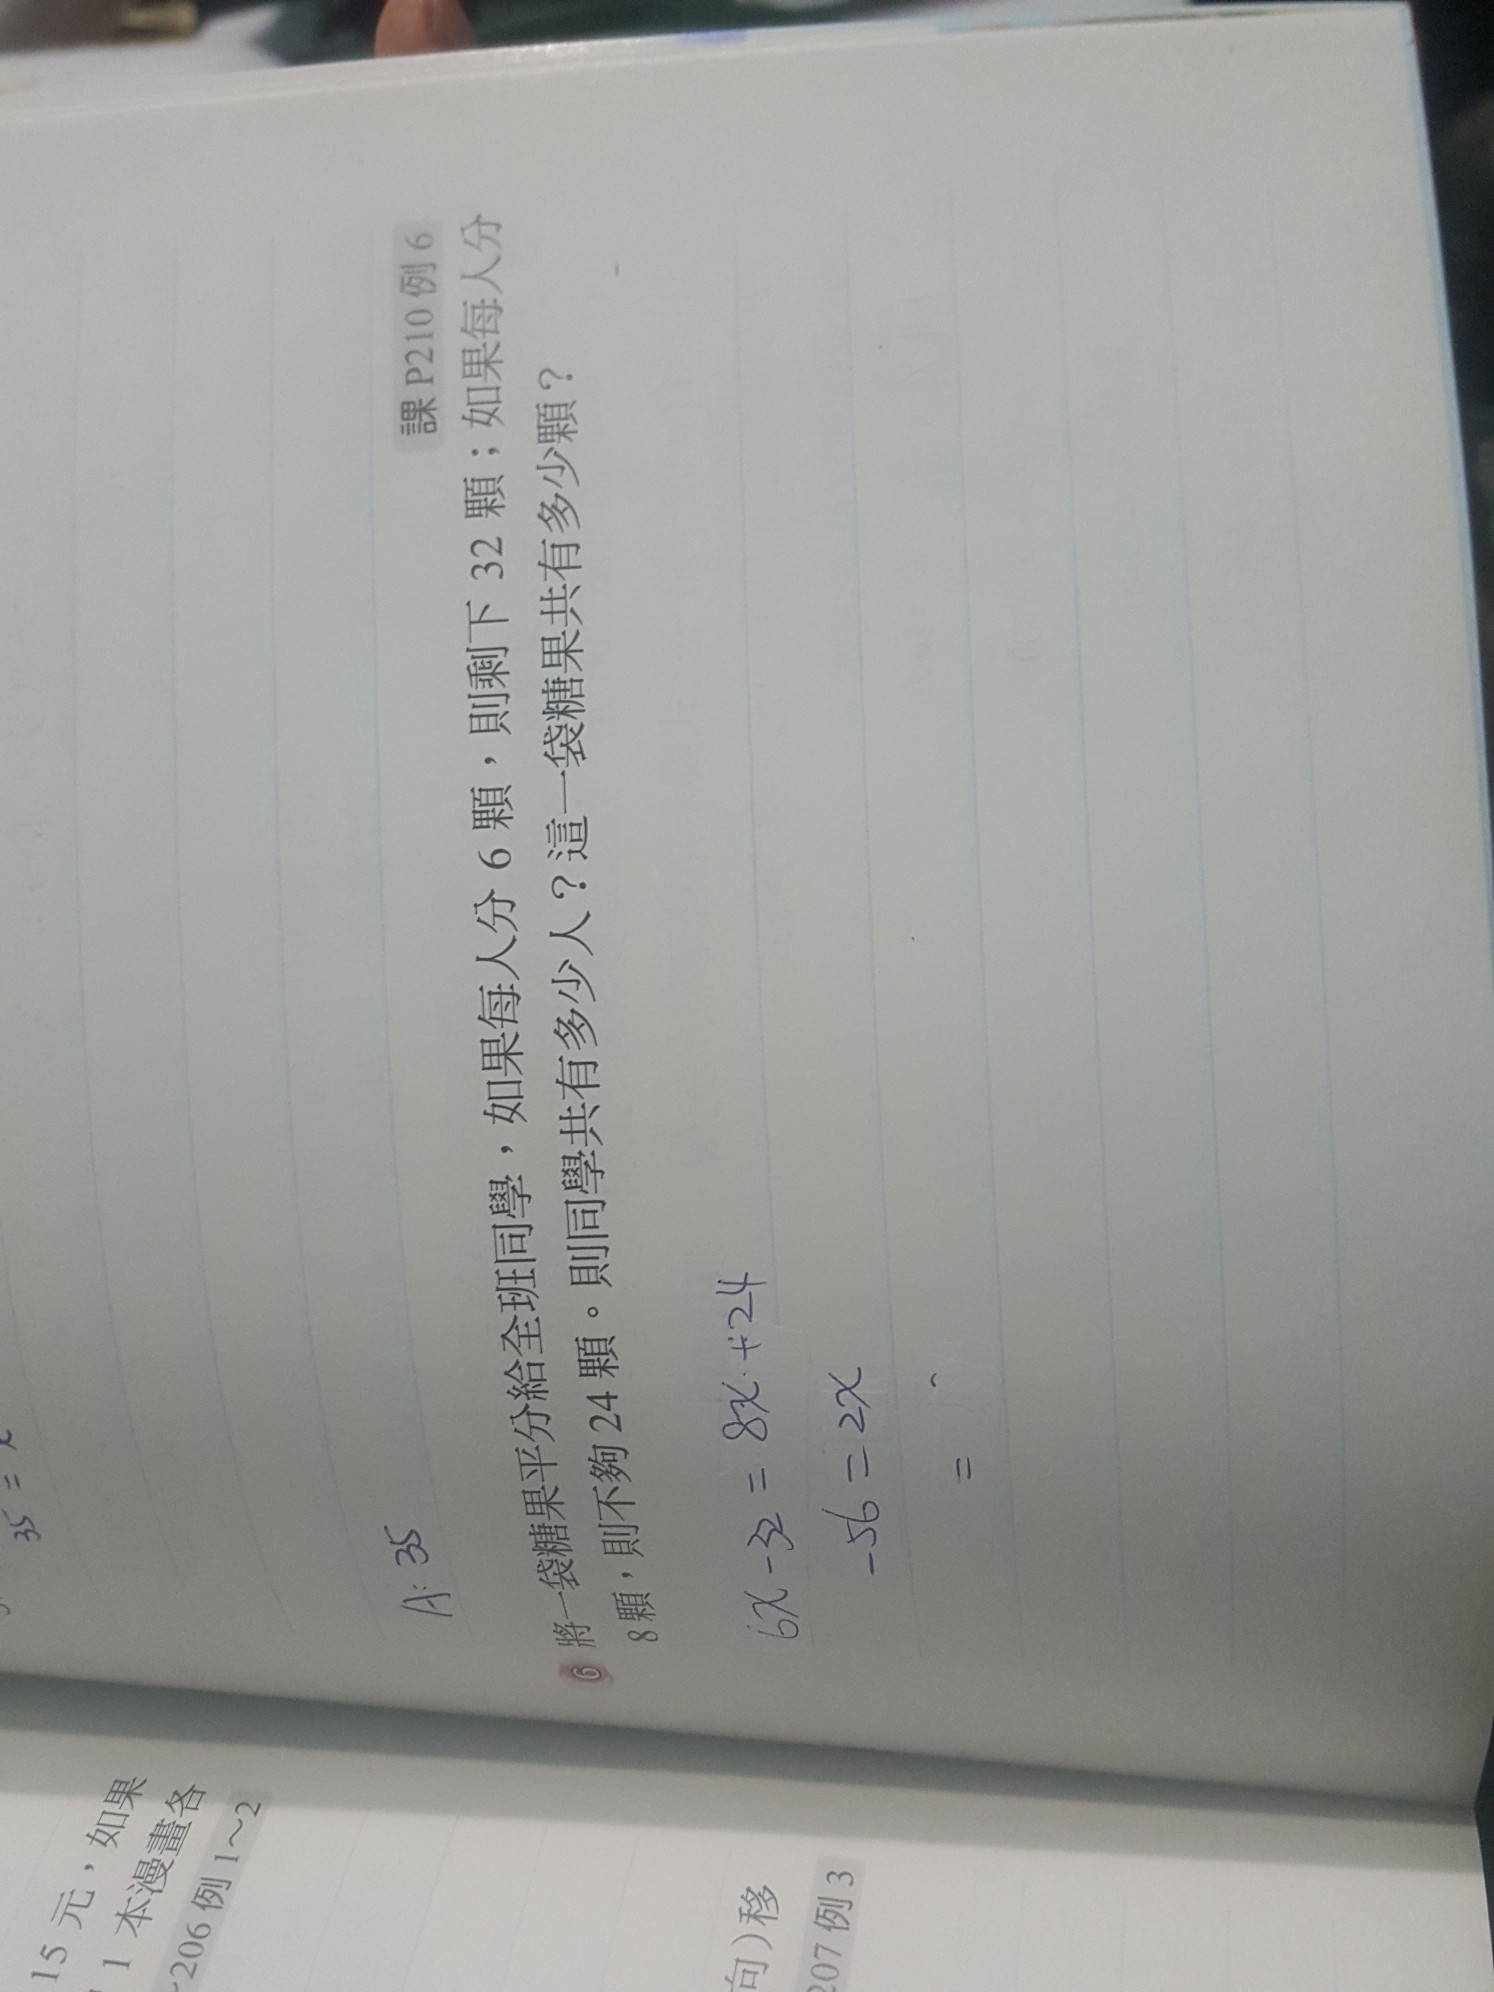 35 = x
A: 35
課 P210 例 6
6 將一袋糖果平分給全班同學，如果每人分 6 顆，則剩下 32 顆；如果每人分
8 顆，則不夠 24 顆。則同學共有多少人？這一袋糖果共有多少顆？
6x - 32 = 8x + 24
-56 = 2x
=
15 元，如果
1 本漫畫各
~206 例 1~2
向）移
207 例 3